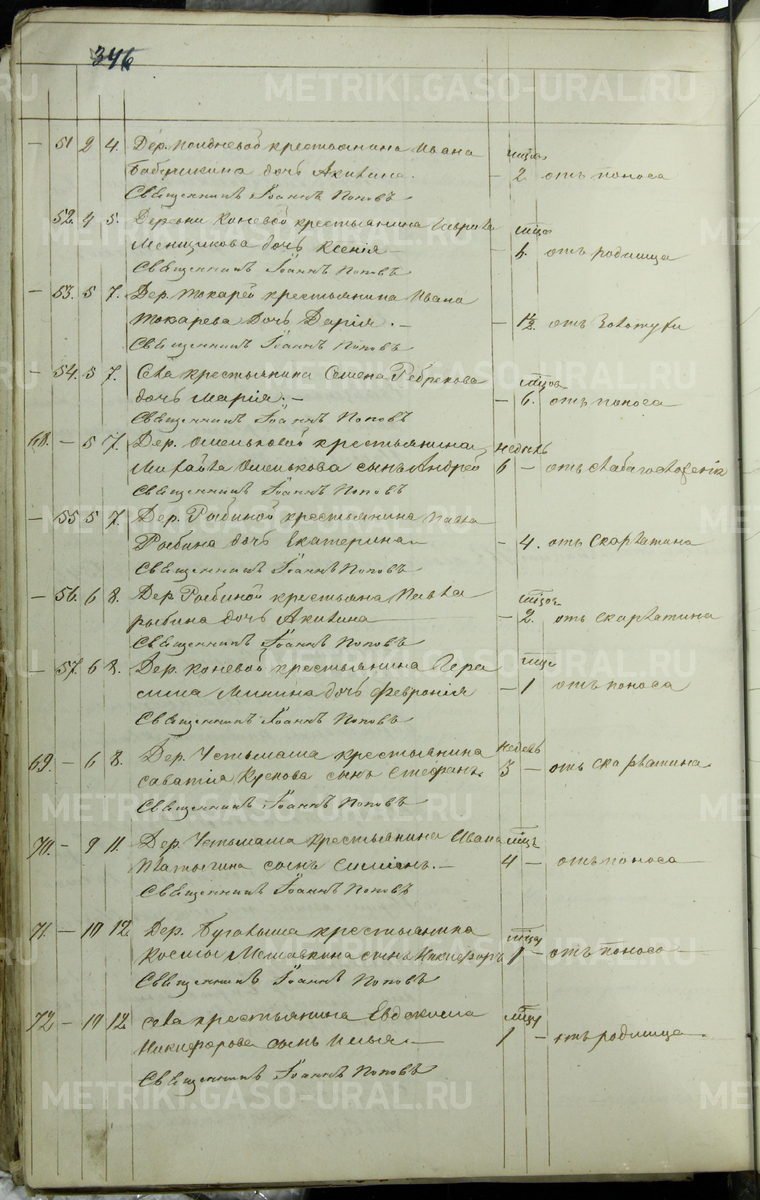 346
— 51 2 4. Дер. крестьянина Ивана мцов
дочь Акилина. — 2 отъ поноса
Священникъ Іоаннъ Поповъ
52. 4 5. Деревни Коневой крестьянина мцо
Менщикова дочь Ксенія — 6. отъ родимца
Священникъ Іоаннъ Поповъ
— 53. 5 7. Дер. Токарей крестьянина Ивана
Токарева дочь Дарія. — — 1½. отъ Золотухи
Священникъ Іоаннъ Поповъ
— 54. 5 7. Села крестьянина Семена мцов
дочь Марія. — — 6. отъ поноса
Священникъ Іоаннъ Поповъ
68. — 5 7. Дер. Оменьковой крестьянина недель
Михайла Оменькова сынъ Андрей 6 — отъ слабаго
Священникъ Іоаннъ Поповъ
— 55 5 7. Дер. Рыбиной крестьянина Павла
Рыбина дочь Екатерина — — 4. отъ скарлатина
Священникъ Іоаннъ Поповъ
— 56. 6 8. Дер Рыбиной крестьяна Павла мцов
рыбина дочь Акилина — 2. отъ скарлатина
Священникъ Іоаннъ Поповъ
— 57. 6 8. Дер. Коневой крестьянина Гера мце
сима Минина дочь Февронія — 1 отъ поноса
Священникъ Іоаннъ Поповъ
69. — 6 8. Дер. Устьмаша крестьянина недель
саватія сынъ Стефанъ 3 — отъ скарлатина
Священникъ Іоаннъ Поповъ
70. — 9 11. Дер. Устьмаша крестьянина Ивана мцъ
сынъ Симіонъ. — 4 — отъ поноса
Священникъ Іоаннъ Поповъ
71. — 10 12. Дер. Бугалыша крестьянина мцу
Космы сынъ Никифоръ 1 — отъ поноса
Священникъ Іоаннъ Поповъ
72. — 10 12. села крестьянина Евдокима мцу
Никифорова сынъ Илья — 1 — отъ родимца
Священникъ Іоаннъ Поповъ
METRIKI.GASO-URAL.RU